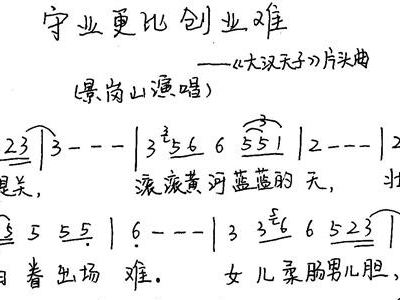 守业更比创业难
——《大汉天子》片头曲
(景岗山演唱)
223 | 3 - - - | 3 56 6 551 | 2 - - - | 2
关, 滚滚黄河蓝蓝的天, 壮
5 5 5 55 | 6 - - - | 3 36 6 523 |
眷出场 难. 女儿柔肠男儿胆,